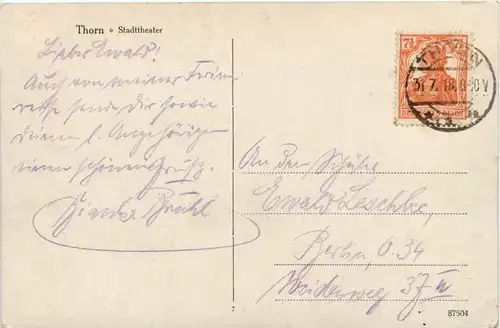 Thorn Stadttheater
Lieber Ewald!
Auch von meiner Ferien
reise sende Dir sowie
Deinen l. Angehörigen
einen schönen Gruß.
Brühl
7½
THORN
31.7.18. 8-9 V
An den Schüler
Ewald Leschke,
Berlin, O. 34
37 II
7
87504